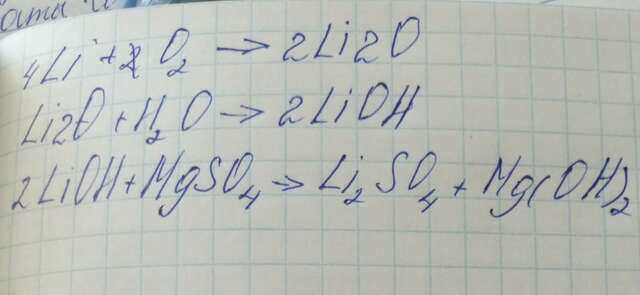 4Li + O₂ → 2Li2O
Li2O + H₂O → 2LiOH
2LiOH + MgSO₄ → Li₂SO₄ + Mg(OH)₂